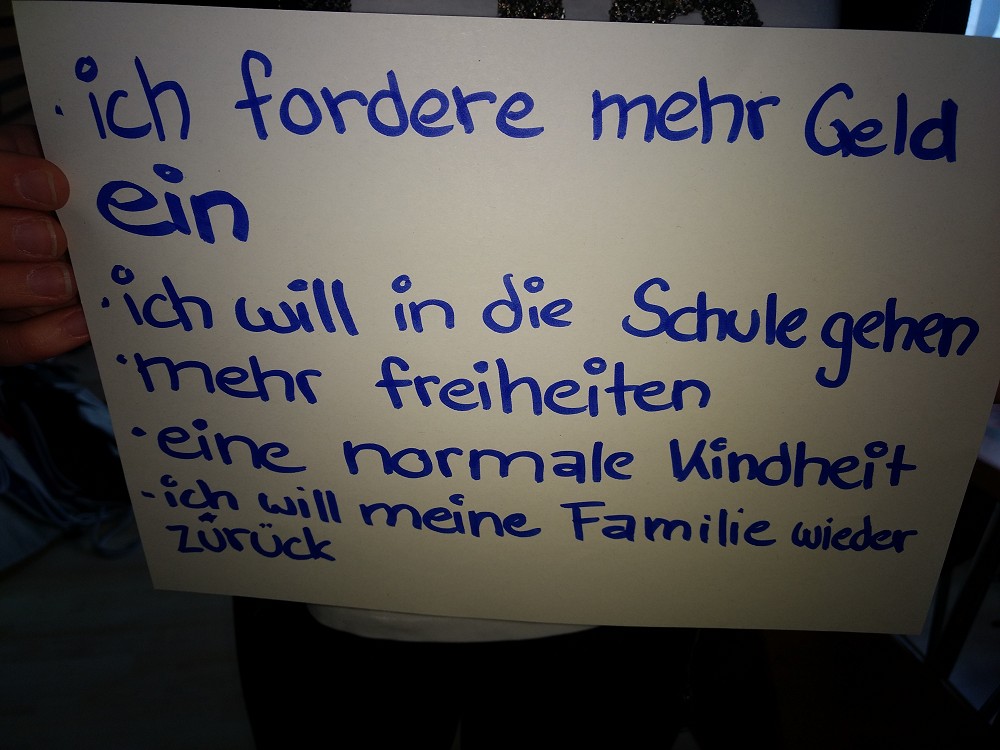 ·ich fordere mehr Geld
ein
·ich will in die Schule gehen
·mehr freiheiten
·eine normale Kindheit
-ich will meine Familie wieder
zürück